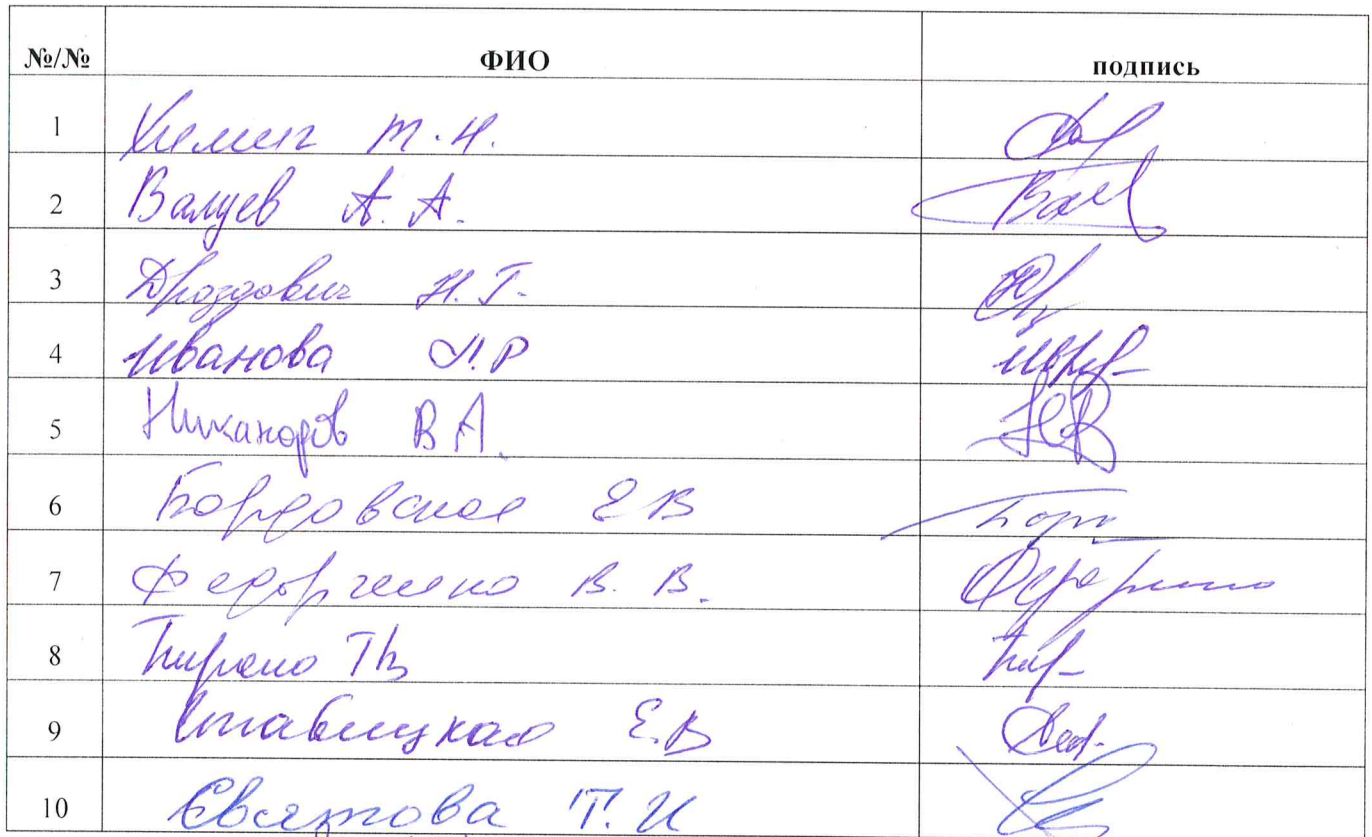 №/№ ФИО подпись
1 Химич Т. Н.
2 Валуев А. А. Вал
3 Дроздович Н. Г.
4 Иванова Л. Р
5 Никаноров В А.
6 Бордовская Е В Борд
7 Федорченко В. В.
8 Бирено ТВ Бир
9 Ставицкая Е. В
10 Святова Т. И